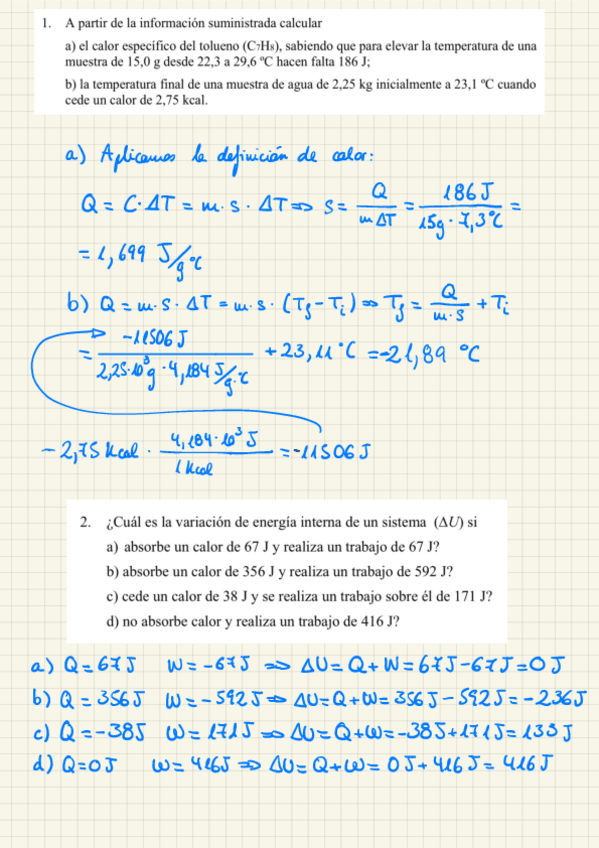 1. A partir de la información suministrada calcular
a) el calor específico del tolueno (C7H8), sabiendo que para elevar la temperatura de una
muestra de 15,0 g desde 22,3 a 29,6 ºC hacen falta 186 J;
b) la temperatura final de una muestra de agua de 2,25 kg inicialmente a 23,1 ºC cuando
cede un calor de 2,75 kcal.
a) Aplicamos la definición de calor:
Q = C·ΔT = m·s·ΔT ⇒ s = Q / mΔT = 186 J / 15g·7,3°C =
= 1,699 J/g°C
b) Q = m·s·ΔT = m·s·(Tf - Ti) ⇒ Tf = Q / m·s + Ti
= -11506 J / 2,25·10³g·4,184 J/g·°C + 23,11°C = -21,89 °C
-2,75 Kcal · 4,184·10³ J / 1 Kcal = -11506 J
2. ¿Cuál es la variación de energía interna de un sistema (ΔU) si
a) absorbe un calor de 67 J y realiza un trabajo de 67 J?
b) absorbe un calor de 356 J y realiza un trabajo de 592 J?
c) cede un calor de 38 J y se realiza un trabajo sobre él de 171 J?
d) no absorbe calor y realiza un trabajo de 416 J?
a) Q = 67 J W = -67 J ⇒ ΔU = Q + W = 67 J - 67 J = 0 J
b) Q = 356 J W = -592 J ⇒ ΔU = Q + W = 356 J - 592 J = -236 J
c) Q = -38 J W = 171 J ⇒ ΔU = Q + W = -38 J + 171 J = 133 J
d) Q = 0 J W = 416 J ⇒ ΔU = Q + W = 0 J + 416 J = 416 J